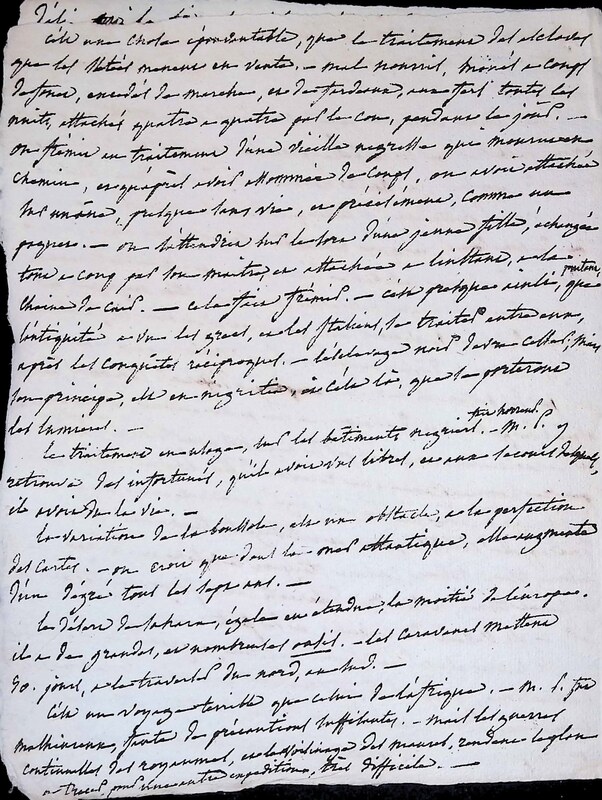 C'est une chose épouvantable, que le traitement des esclaves
que les Slatées menent en vente. - mal nourris, menés a coups
de fouet, excedés de marche, et de fardeaux, aux fers toutes les
nuits, attachés quatre a quatre par le cou, pendant le jour. -
on frémit au traitement d'une vieille negresse qui mourut en
chemin, et qu'après avoir assommée de coups, on avoit attachée
sur un âne, presque sans vie, et précisément, comme un
paquet. - on s'attendrit sur le sort d'une jeune fille, échangée
tout a coup par son maitre, et attachée a l'instant, a la
chaine de cuir. - cela fait frémir. - c'est presque ainsi, pourtant, que
l'antiquité a vu les grecs, et les Italiens, se traiter entre eux,
après les conquêtes réciproques. - l'esclavage noir devra cesser, mais
son principe, est en nigritie, et c'est là, que se porteront
les lumieres. -
le traitement en usage, sur les bâtiments negriers fait horreur. - M. P. y
retrouva des infortunés, qu'il avoit vus libres, et aux secours desquels,
il avoit dû la vie. -
la variation de la boussole, est un obstacle, a la perfection
des cartes. - on croit que dans la mer atlantique, elle augmente
d'un dégré tous les sept ans. -
le désert de sahara, égale en étendue, la moitié de l'europe.
il a de grandes, et nombreuses oasis. - les caravanes mettent
50. jours, a le traverser du nord, au sud. -
C'est un voyage terrible que celui de l'afrique. - M. P. fut
malheureux, faute de précautions suffisantes. - mais les guerres
continuelles des royaumes, et le voisinage des maures, rendent le plan
a tracer, pour une autre expédition, très difficile. -